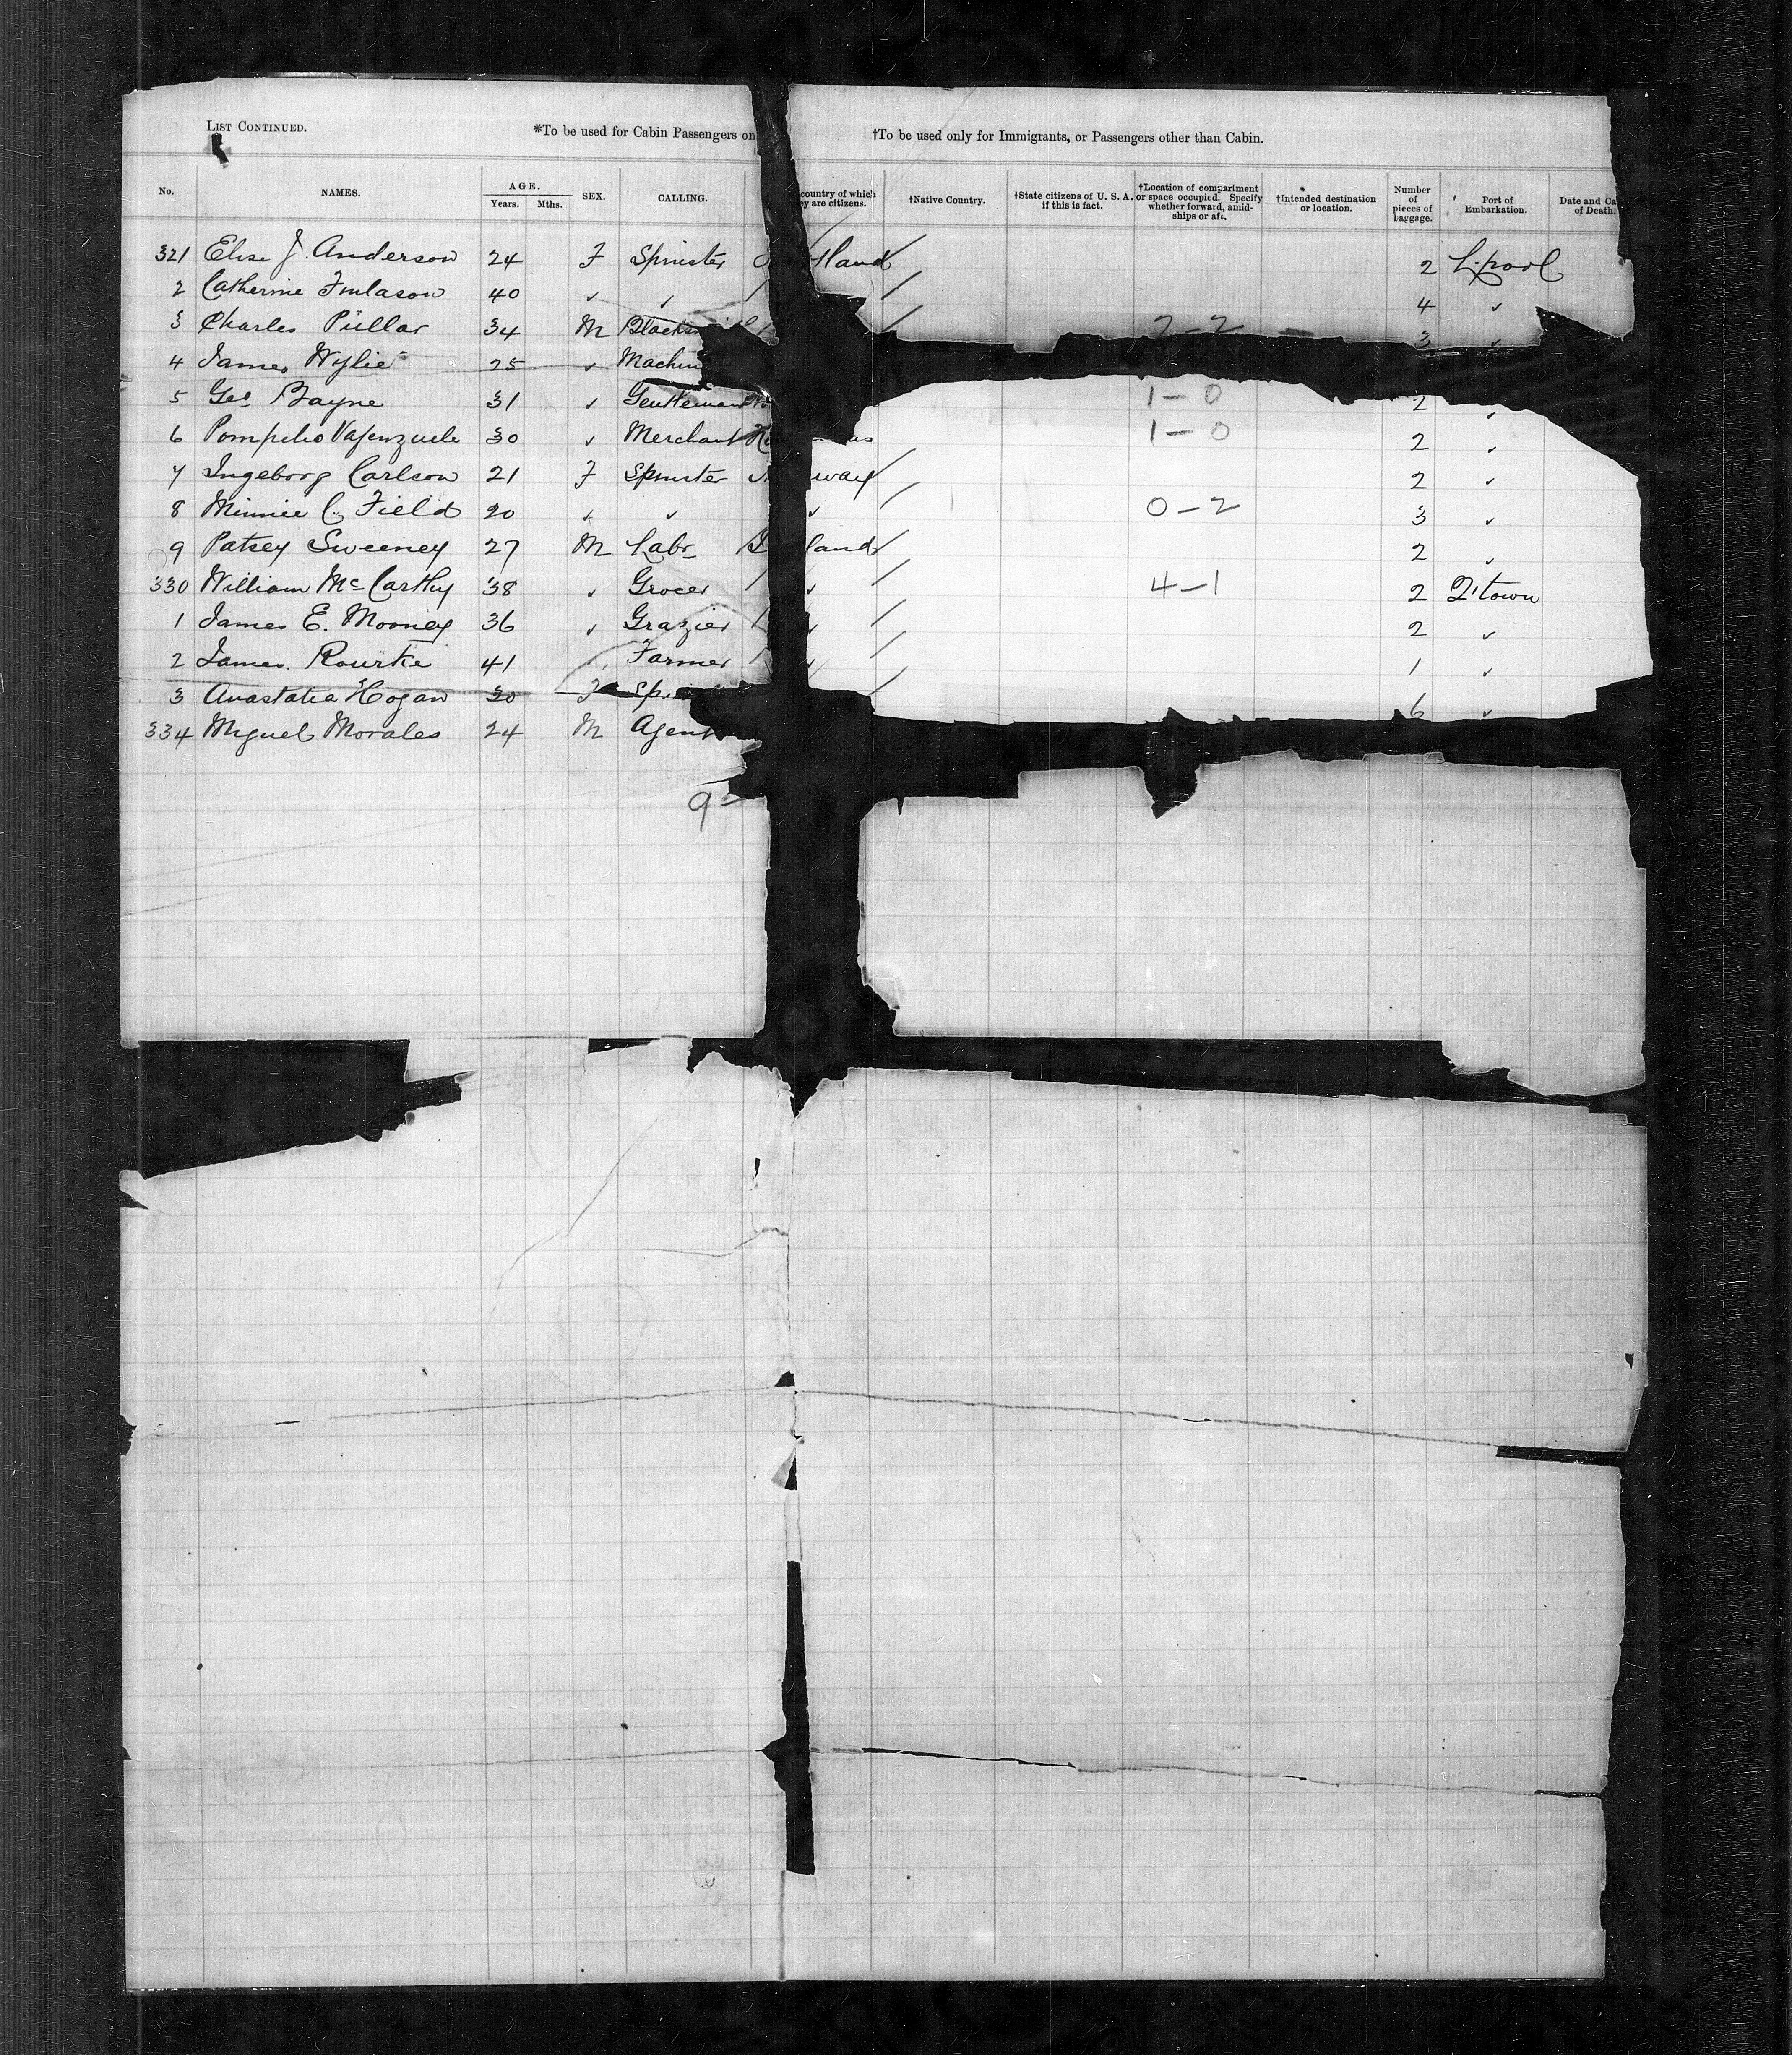 LIST CONTINUED. *To be used for Cabin Passengers on †To be used only for Immigrants, or Passengers other than Cabin.
No. NAMES. AGE. Years. Mths. SEX. CALLING. country of which they are citizens. †Native Country. †State citizens of U. S. A. if this is fact. †Location of compartment or space occupied. Specify whether forward, amidships or aft. †Intended destination or location. Number of pieces of baggage. Port of Embarkation. Date and Ca of Death.
321 Elise J. Anderson 24 F Spinster 2 L.pool
2 Catherine Finlason 40 ✓ ✓ / / 4 ✓
3 Charles Pullar 34 M Blacks / 2-2 3 ✓
4 James Wylie 25 ✓ Machin
5 Geo Bayne 31 ✓ Gentleman 1-0 2 ✓
6 Pompilio Valenzuela 30 ✓ Merchant 1-0 2 ✓
7 Ingeborg Carlson 21 F Spinster way 2 ✓
8 Minnie C. Field 20 ✓ ✓ ✓ / 0-2 3 ✓
9 Patsey Sweeney 27 M Labr land 2 ✓
330 William McCarthy 38 ✓ Grocer / ✓ / 4-1 2 Q'town
1 James E. Mooney 36 ✓ Grazier / ✓ / 2 ✓
2 James Rourke 41 Farmer / ✓ / 1 ✓
3 Anastatia Hogan 30 F Spi / 6 ✓
334 Miguel Morales 24 M Agent
9-